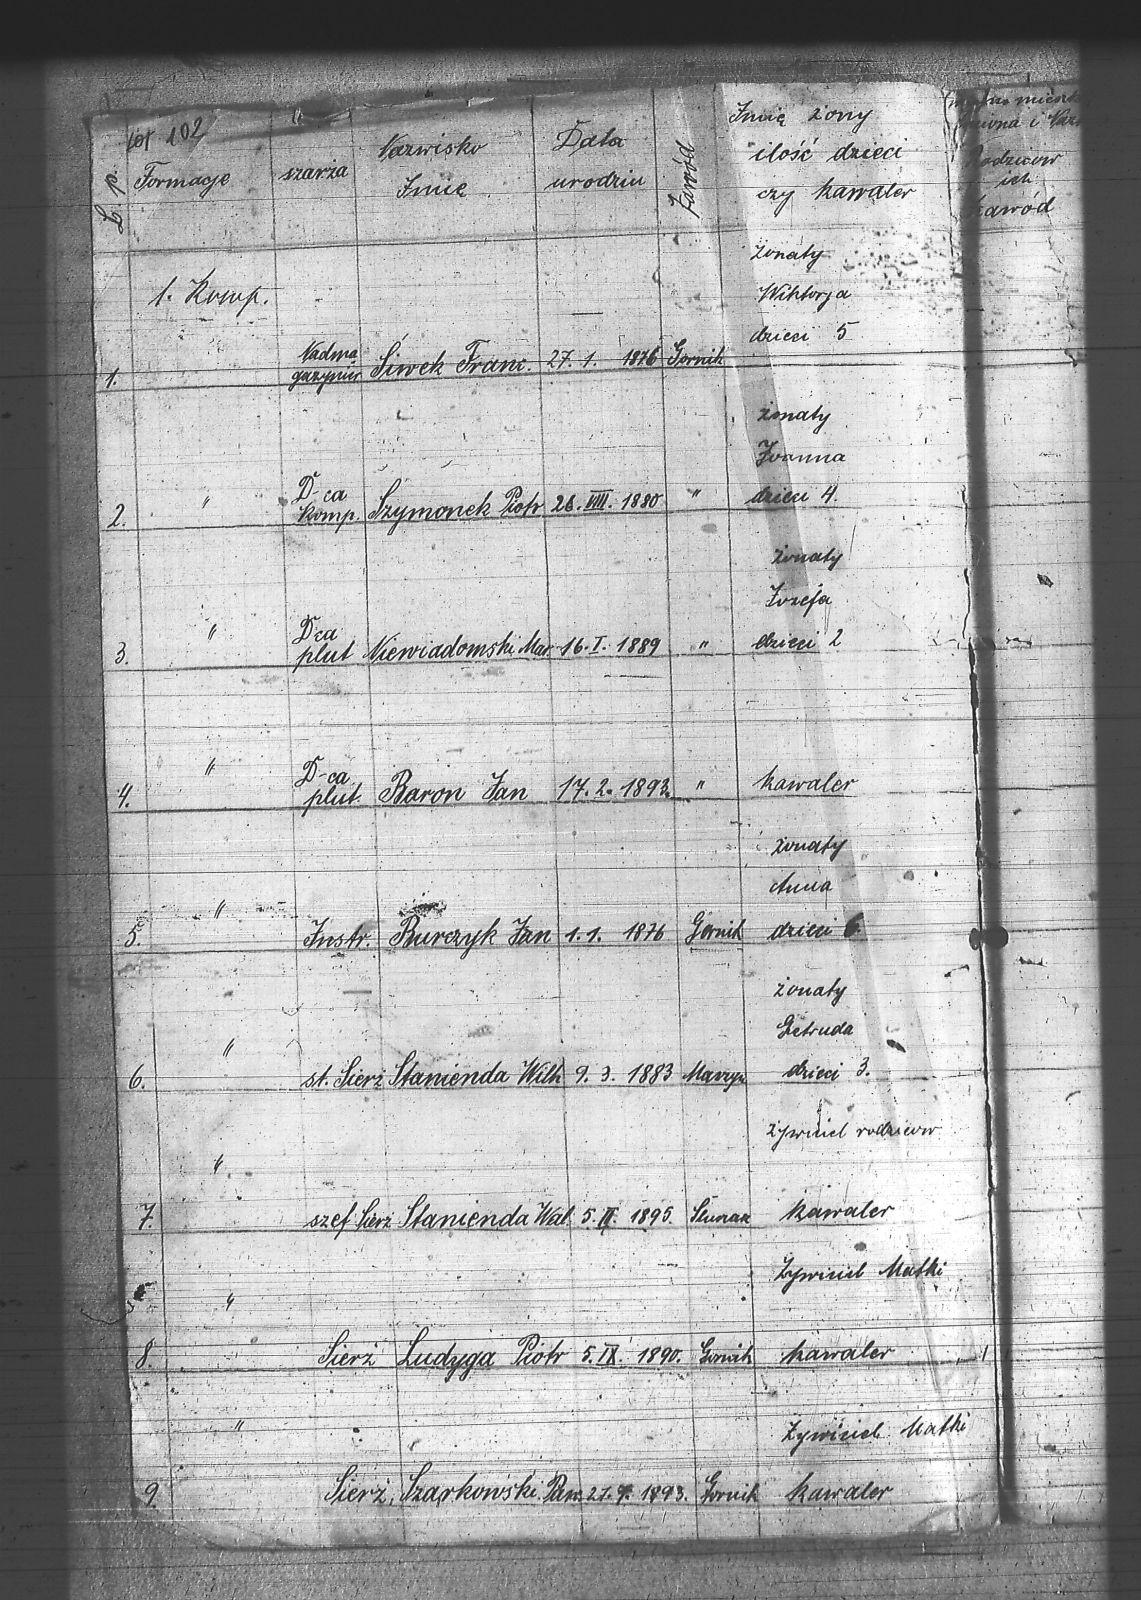 102
L. p. Formacje szarża Nazwisko Imię Data urodzin Zawód Imię żony ilość dzieci czy kawaler
Rodziców ich zawód
1. Komp.
żonaty
Wiktorja
dzieci 5
1. Nadmagazynier Siwek Franc. 27. 1. 1876 Gornik
żonaty
Joanna
2. " D-ca Komp. Szymonek Piotr 26. VIII. 1880 " dzieci 4.
żonaty
Jozefa
3. " D-ca plut Niewiadomski Mar. 16. I. 1889 " dzieci 2
4. " D-ca plut. Baron Jan 17. 2. 1893 " kawaler
żonaty
Anna
5. " Instr. Burczyk Jan 1. 1. 1876 Gornik dzieci 6
żonaty
Getruda
6. " st. Sierż Stanienda Wilh 9. 3. 1883 dzieci 3.
żywiciel rodzicow
7. " szef Sierż Stanienda Wal. 1895. kawaler
Żywiciel Matki
8. " Sierż Ludyga Piotr 5. IX. 1890. Gornik kawaler
Żywiciel Matki
9. " Sierż. Szarkowski 1893. Gornik kawaler